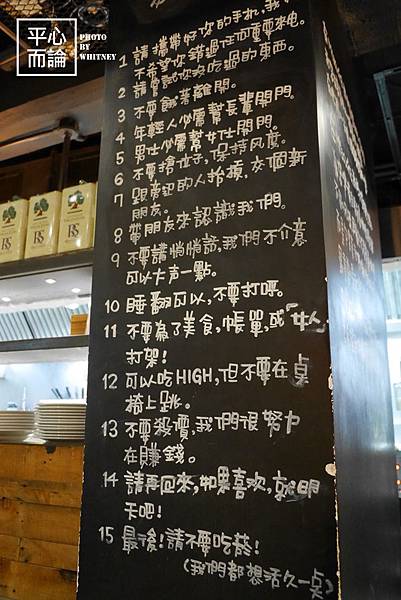 平心
而論
PHOTO
BY
WHITNEY
1 請攜帶好你的手机,我們
不希望你錯過任何重要來电。
2 請嘗試你沒吃過的東西。
3 不要餓著離開。
4 年輕人必需幫長輩開門。
5 男仕必需幫女仕開門。
6 不要搶位子,保持风度。
7 跟旁边的人拍檔,交個新
朋友。
8 帶朋友來認識我們。
9 不要講悄悄話,我們不介意
可以大声一點。
10 睡翻可以,不要打呼。
11 不要為了美食,帳單,或「女人」
打架!
12 可以吃HIGH,但不要在桌
椅上跳。
13 不要殺價,我們很努力
在賺錢。
14 請再回來,如果喜欢,就明
天吧!
15 最後!請不要吃菸!
(我們都想活久一点)
RS
RS